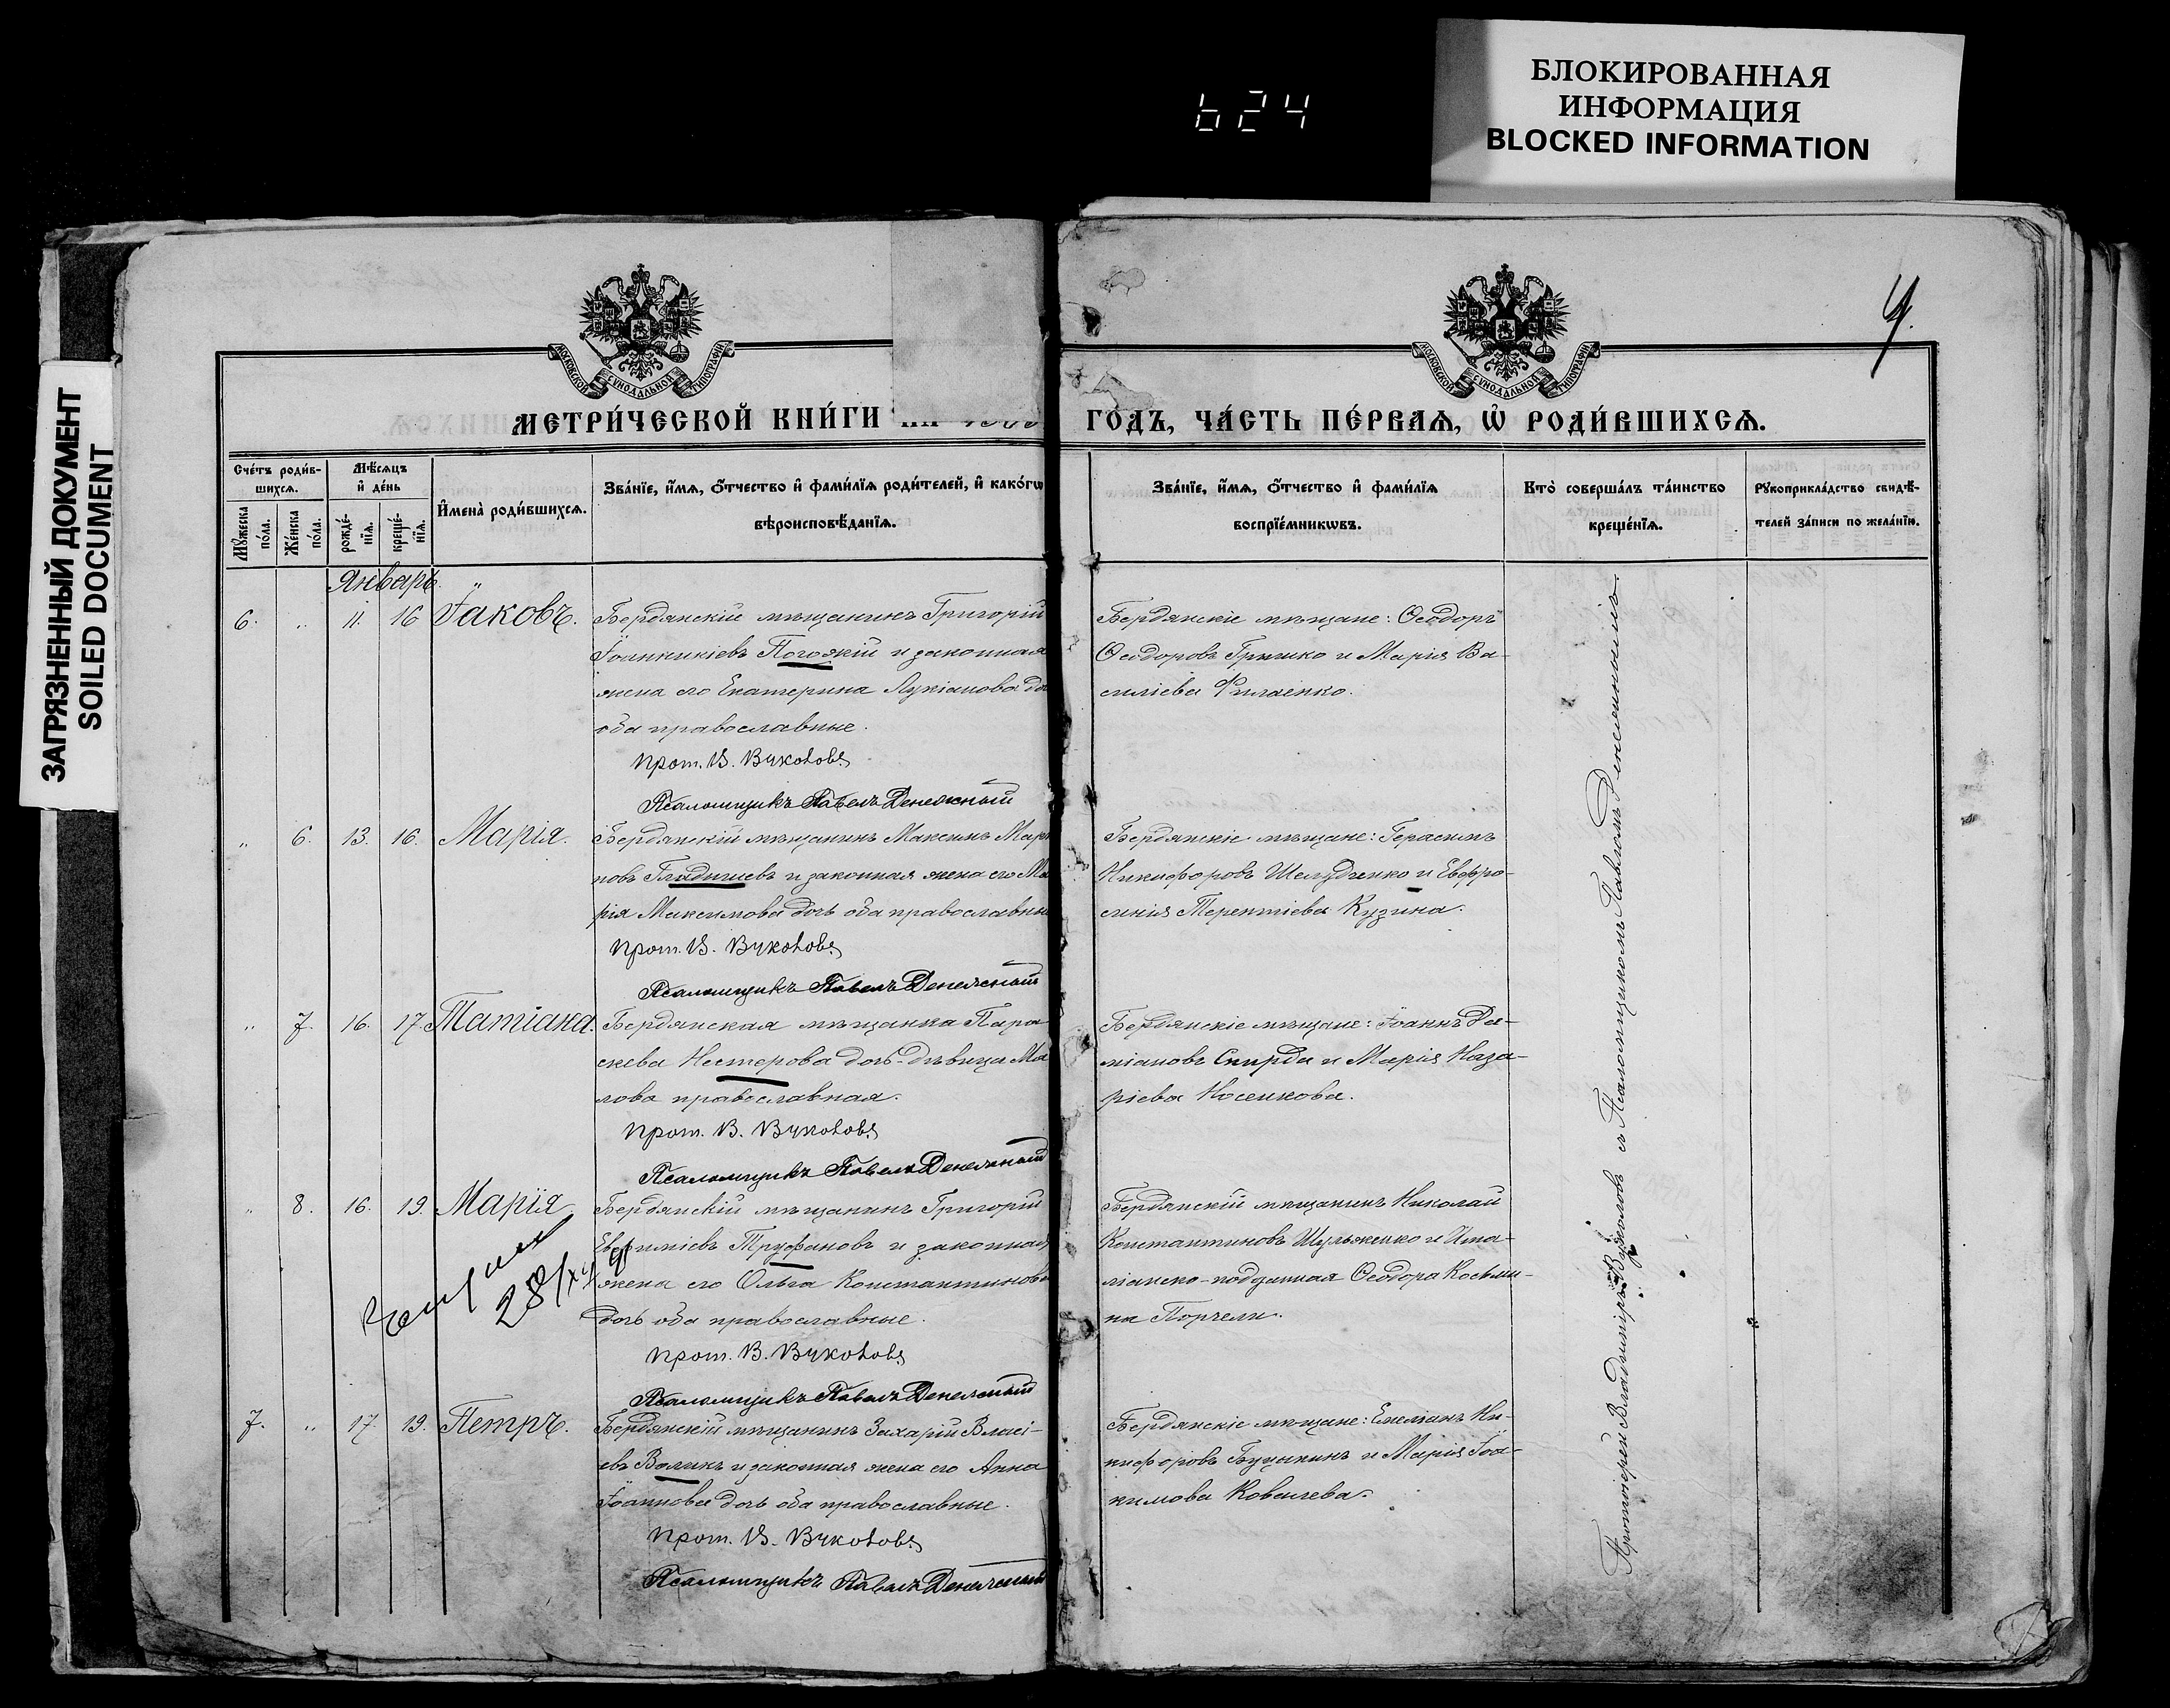 БЛОКИРОВАННАЯ
ИНФОРМАЦИЯ
BLOCKED INFORMATION
624
ЗАГРЯЗНЕННЫЙ ДОКУМЕНТ
SOILED DOCUMENT
4.
МОСКОВСКОЙ СѴНОДАЛЬНОЙ ТИПОГРАФІИ
МОСКОВСКОЙ СѴНОДАЛЬНОЙ ТИПОГРАФІИ
МЕТРИ́ЧЕСКОЙ КНИ́ГИ
ГО́ДЪ, ЧА́СТЬ ПЕ́РВАѦ, Ѡ҆ РОДИ́ВШИХСѦ.
Сче́тъ роди́в-
шихсѧ.
Мꙋ́жеска по́ла.
Же́нска по́ла.
Мѣ́сѧцъ
и҆ де́нь
рожде́-
нїѧ.
креще́-
нїѧ.
И҆мена̀ роди́вшихсѧ.
Зва́нїе, и҆́мѧ, ѻ҆́тчество и҆ фами́лїѧ роди́телей, и҆ како́гѡ
вѣроисповѣ́данїѧ.
Зва́нїе, и҆́мѧ, ѻ҆́тчество и҆ фами́лїѧ
воспрїе́мникѡвъ.
Кто̀ соверша́лъ та́инство
креще́нїѧ.
Рꙋкоприкла́дство свидѣ́-
телей за́писи по жела́нїю.
Январь.
6. „ 11. 16 Іаковъ. Бердянскій мѣщанинъ Григорій
Іоанникіевъ Погожій и законная
жена его Екатерина Лукіанова
оба православные.
Прот. В. Вуколовъ
Псаломщикъ Павелъ Денежный
Бердянскіе мѣщане: Ѳеодоръ
Ѳеодоровъ Гришко и Марія Ва-
силіева
„ 6. 13. 16. Марія. Бердянскій мѣщанинъ Максимъ
новъ Гладишевъ и законная жена его Ма
рія Максимова дочь оба православные
Прот. В. Вуколовъ
Псаломщикъ Павелъ Денежный
Бердянскіе мѣщане: Герасимъ
Никифоровъ Шелудченко и Евфро-
синія Терентіева Кузина.
„ 7. 16. 17. Татіана. Бердянская мѣщанка Пара
скева Нестерова дочь-дѣвица Ма
лова православная.
Прот. В. Вуколовъ
Псаломщикъ Павелъ Денежный
Бердянскіе мѣщане: Іоаннъ Да-
міановъ Скирда и Марія Наза-
ріева Носенкова.
„ 8. 16. 19. Марія Бердянскій мѣщанинъ Григорій
Евфиміевъ Труфановъ и законная
жена его Ольга Константинова
дочь оба православные.
Прот. В. Вуколовъ
Псаломщикъ Павелъ Денежный
Бердянскій мѣщанинъ Николай
Константиновъ Шульженко и Ита-
ліанско-подданная Ѳеодора Косьми-
на Порчели.
7. „ 17. 19. Петръ. Бердянскій мѣщанинъ Захарій Власі-
евъ Воликъ и законная жена его Анна
Іоаннова дочь оба православные.
Прот. В. Вуколовъ
Псаломщикъ Павелъ Денежный
Бердянскіе мѣщане: Емеліанъ Ни-
кифоровъ и Марія Іоа-
кимова Ковалева.
Протоіерей Владимиръ Вуколовъ съ Псаломщикомъ Павломъ Денежнымъ